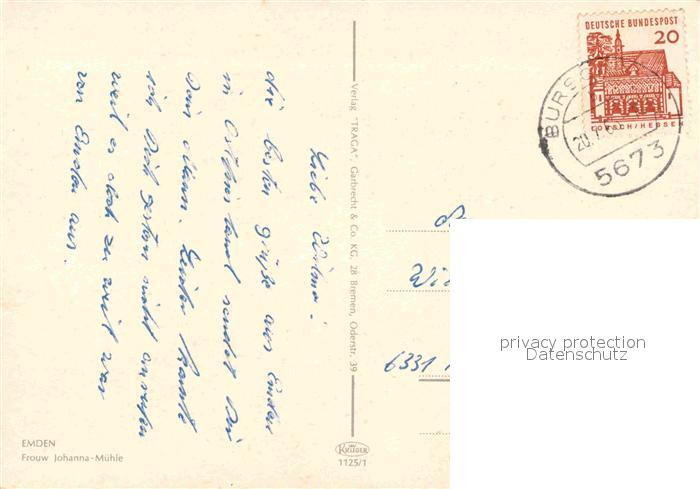 DEUTSCHE BUNDESPOST
20
LORSCH/HESSEN
BURSC
20.
5673
Liebe Wilma!
die besten Grüße aus Emden
in Ostfriesland sendet Dir
Dein
Leider konnte
ich Dich gestern nicht anrufen
weil es doch zu weit war
von Emden aus.
Verlag "TRAGA", Garbrecht & Co. KG, 28 Bremen, Oderstr. 39
6331
privacy protection
Datenschutz
EMDEN
Frouw Johanna-Mühle
KRÜGER
1125/1